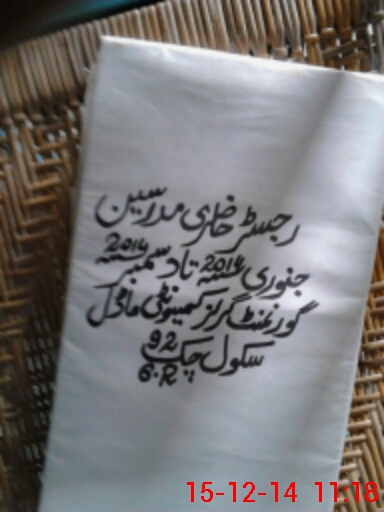 رجسٹر حاضری مدرسین
جنوری 2014 تا دسمبر 2014
گورنمنٹ گرلز کمیونٹی ماڈل
سکول چک 92
6.R
15-12-14 11:18